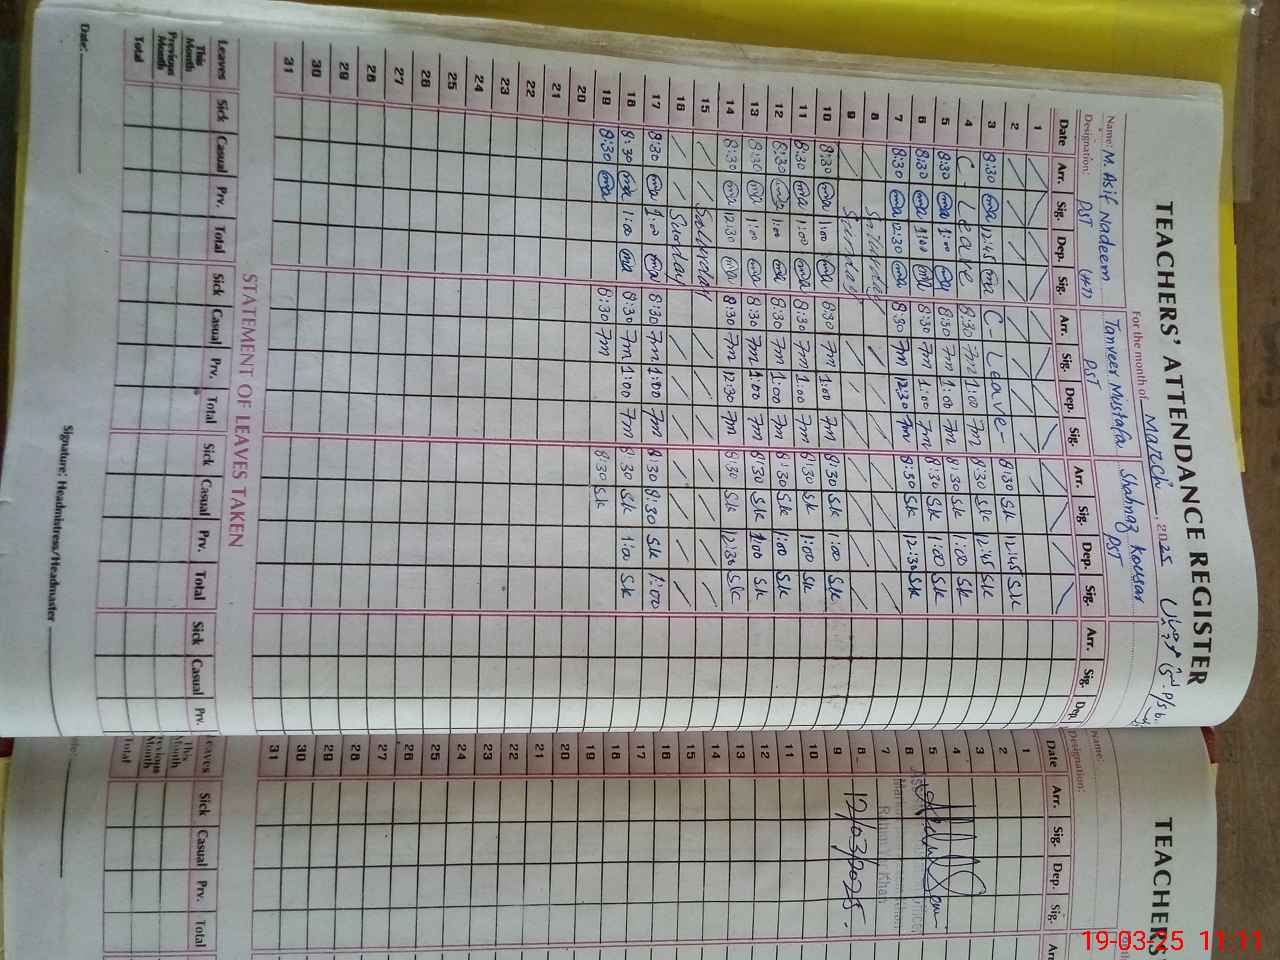 TEACHERS' ATTENDANCE REGISTER
For the month of March, 2025
Name: M. Asif Nadeem Tanveer Mustafa Shahnaz Kousar
Designation: PST (HT) PST PST
Date Arr. Sig. Dep. Sig. Arr. Sig. Dep. Sig. Arr. Sig. Dep. Sig. Arr. Sig. Dep.
1
2 8:30 S.K 12:45 S.K
3 8:30 ma 12:45 ma C- Leave- 8:30 S.K 12:45 S.K
4 C- Leave 8:30 Tm 1:00 Tm 8:30 S.K 1:00 S.K
5 8:30 ma 1:00 ma 8:30 Tm 1:00 Tm 8:30 S.K 1:00 S.K
6 8:30 ma 1:00 ma 8:30 Tm 1:00 Tm 8:30 S.K 1:00 S.K
7 8:30 ma 12:30 ma 8:30 Tm 12:30 Tm 8:30 S.K 12:30 S.K
8 Saturday
9 Sunday
10 8:30 ma 1:00 ma 8:30 Tm 1:00 Tm 8:30 S.K 1:00 S.K
11 8:30 ma 1:00 ma 8:30 Tm 1:00 Tm 8:30 S.K 1:00 S.K
12 8:30 ma 1:00 ma 8:30 Tm 1:00 Tm 8:30 S.K 1:00 S.K
13 8:30 ma 1:00 ma 8:30 Tm 1:00 Tm 8:30 S.K 1:00 S.K
14 8:30 ma 12:30 ma 8:30 Tm 12:30 Tm 8:30 S.K 12:30 S.K
15 Saturday
16 Sunday
17 8:30 ma 1:00 ma 8:30 Tm 1:00 Tm 8:30 8:30 S.K 1:00
18 8:30 ma 1:00 ma 8:30 Tm 1:00 Tm 8:30 S.K 1:00 S.K
19 8:30 ma 8:30 Tm 8:30 S.K
20
21
22
23
24
25
26
27
28
29
30
31
STATEMENT OF LEAVES TAKEN
Leaves Sick Casual Prv. Total Sick Casual Prv. Total Sick Casual Prv. Total Sick Casual Prv.
This Month
Previous Month
Total
Date: Signature: Headmistress/Headmaster
TEACHERS'
Name:
Designation:
Date Arr. Sig. Dep. Sig. Arr.
1
2
3
4
5
6
7
8
9
10
11
12
13
14
15
16
17
18
19
20
21
22
23
24
25
26
27
28
29
30
31
12/03/2025.
Leaves Sick Casual Prv. Total
This Month
Previous Month
Total
19-03-25 11:11